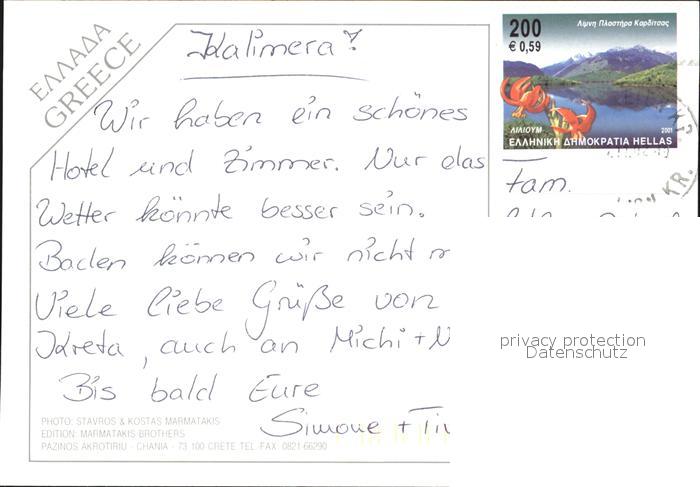 ΕΛΛΑΔΑ
GREECE
Kalimera!
Wir haben ein schönes
Hotel und Zimmer. Nur das
Wetter könnte besser sein.
Baden können wir nicht
Viele liebe Grüße von
Kreta, auch an Michi +
Bis bald Eure
Simone +
PHOTO: STAVROS & KOSTAS MARMATAKIS
EDITION: MARMATAKIS BROTHERS
PAZINOS AKROTIRIU - CHANIA - 73 100 CRETE TEL-FAX: 0821-66290
200
€ 0,59
Λίμνη Πλαστήρα Καρδίτσας
ΛΙΛΙΟΥΜ
2001
ΕΛΛΗΝΙΚΗ ΔΗΜΟΚΡΑΤΙΑ HELLAS
KR.
Fam.
privacy protection
Datenschutz